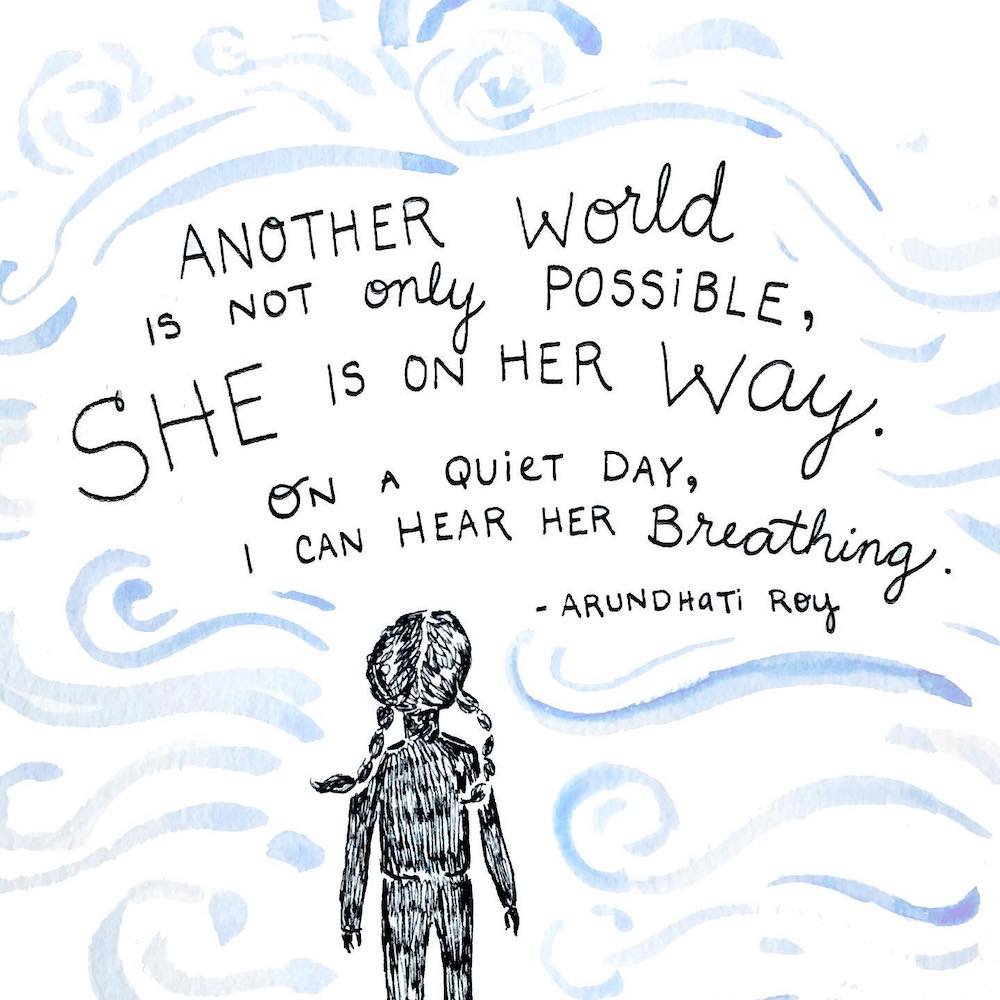 ANOTHER World
is NOT only POSSiBLE,
SHE is ON HER Way.
ON A QUieT DAY,
I CAN HEAR HER Breathing.
- ARUNDHaTi Roy